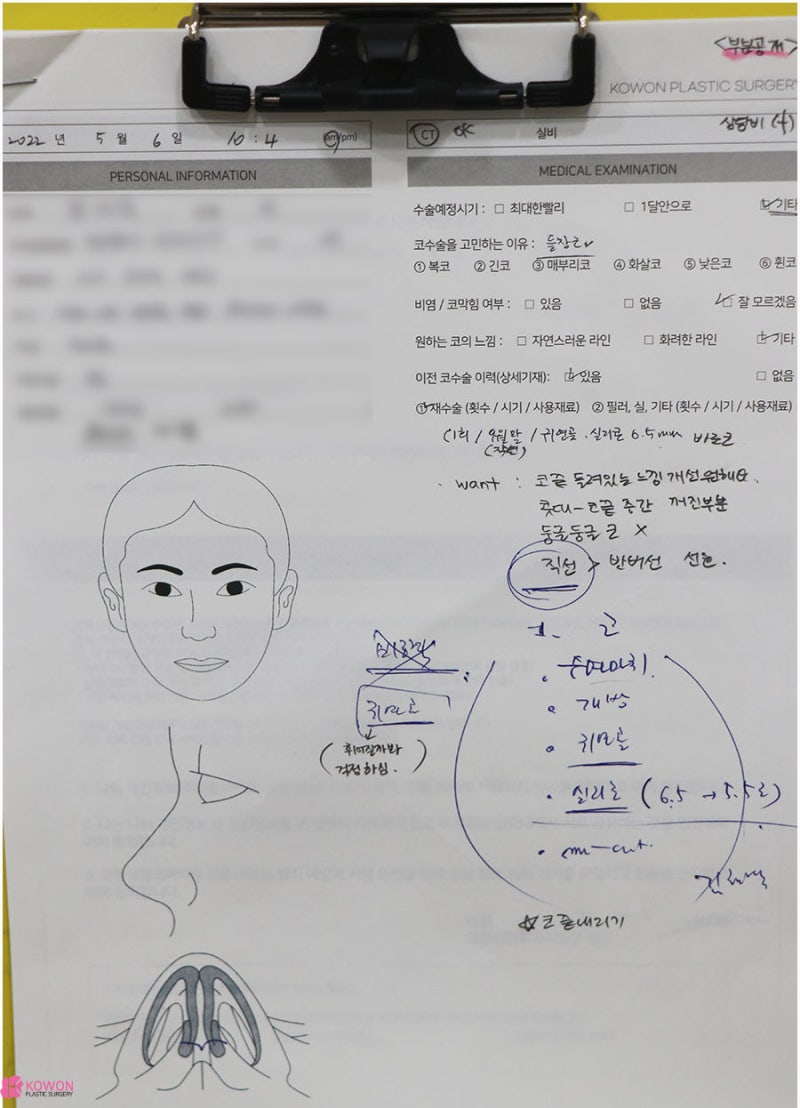 <부분공개>
KOWON PLASTIC SURGERY
2022 년 5 월 6 일 10 : 4 (am/pm)
CT OK 실비 상담비 (+)
PERSONAL INFORMATION
MEDICAL EXAMINATION
수술예정시기 : □ 최대한빨리 □ 1달안으로 ☑ 기타
코수술을 고민하는 이유 : 들창코
① 복코 ② 긴코 ③ 매부리코 ④ 화살코 ⑤ 낮은코 ⑥ 휜코
비염 / 코막힘 여부 : □ 있음 □ 없음 ☑ 잘 모르겠음
원하는 코의 느낌 : □ 자연스러운 라인 □ 화려한 라인 ☑ 기타
이전 코수술 이력(상세기재): ☑ 있음 □ 없음
① 재수술 (횟수 / 시기 / 사용재료) ② 필러, 실, 기타 (횟수 / 시기 / 사용재료)
(1회 / 9월말 / 귀연골, 실리콘 6.5mm 바른코
(작년)
want : 코끝 들려있는 느낌 개선원해요.
콧대-코끝 중간 꺼진부분
둥글둥글 코 X
직선 > 반버선 선호.
1. 코
수면마취
개방
귀연골
귀연골
(휘어질까봐
걱정하심.)
실리콘 (6.5 → 5.5로)
코끝내리기
KOWON
PLASTIC SURGERY